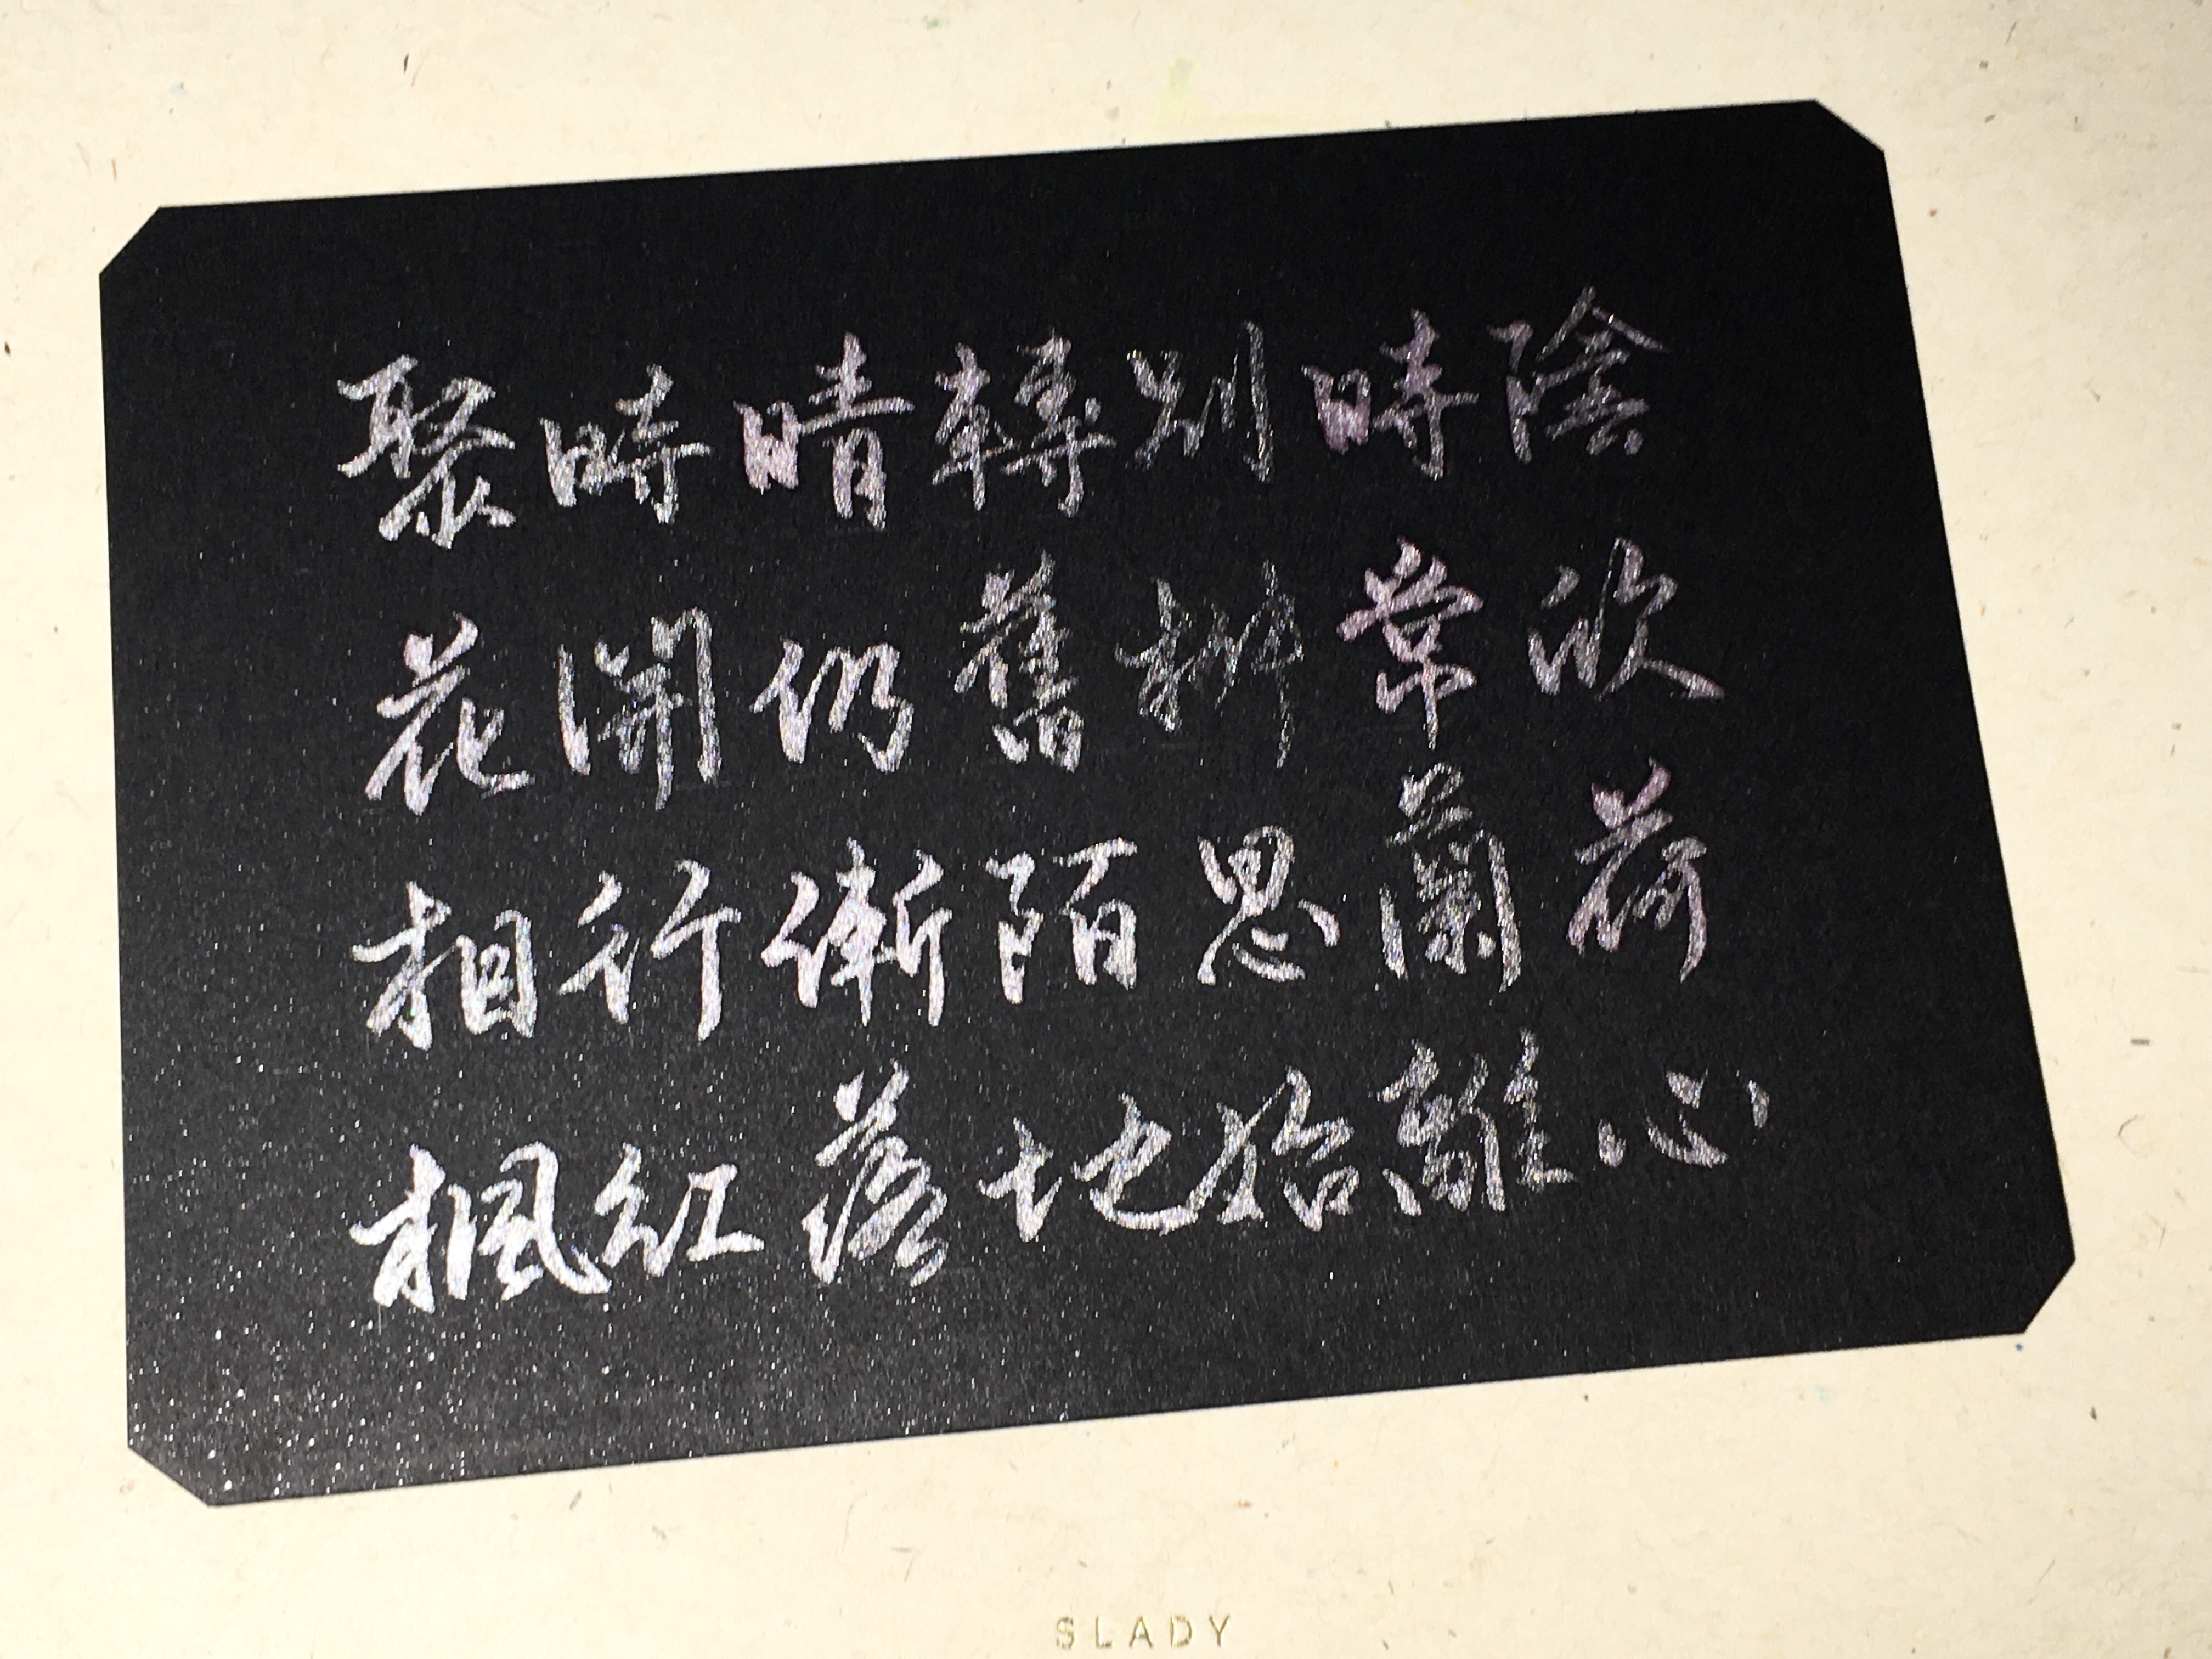 聚時晴轉別時陰
花開仍舊常欣
相行漸陌思蘭荷
楓紅落地始離心
SLADY